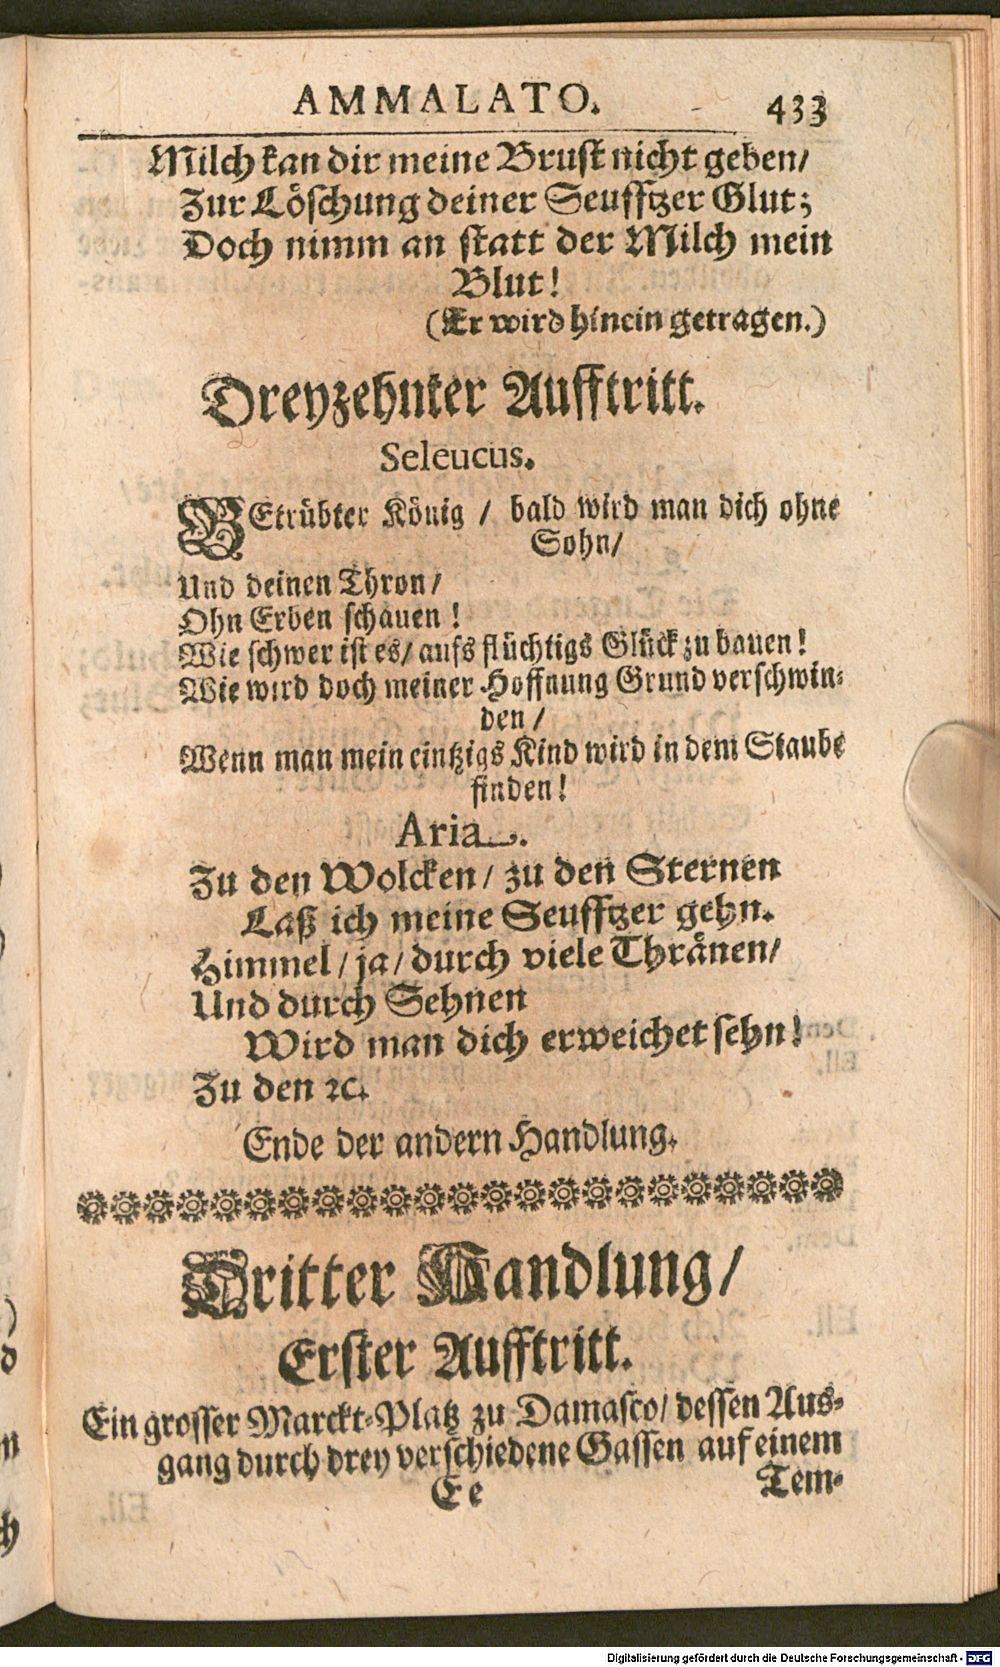 AMMALATO. 433
Milch kan dir meine Brust nicht geben/
Zur Löschung deiner Seufftzer Glut;
Doch nimm an statt der Milch mein
Blut!
(Er wird hinein getragen.)
Dreyzehnter Aufftritt.
Seleucus.
BEtrübter König / bald wird man dich ohne
Sohn/
Und deinen Thron/
Ohn Erben schauen!
Wie schwer ist es/ aufs flüchtigs Glück zu bauen!
Wie wird doch meiner Hoffnung Grund verschwin-
den/
Wenn man mein eintzigs Kind wird in dem Staube
finden!
Aria.
Zu den Wolcken/ zu den Sternen
Laß ich meine Seufftzer gehn.
Himmel/ ja/ durch viele Thränen/
Und durch Sehnen
Wird man dich erweichet sehn!
Zu den ꝛc.
Ende der andern Handlung.
Dritter Handlung/
Erster Aufftritt.
Ein grosser Marckt-Platz zu Damasco/ dessen Aus-
gang durch drey verschiedene Gassen auf einem
Ee Tem-
Digitalisierung gefördert durch die Deutsche Forschungsgemeinschaft - DFG